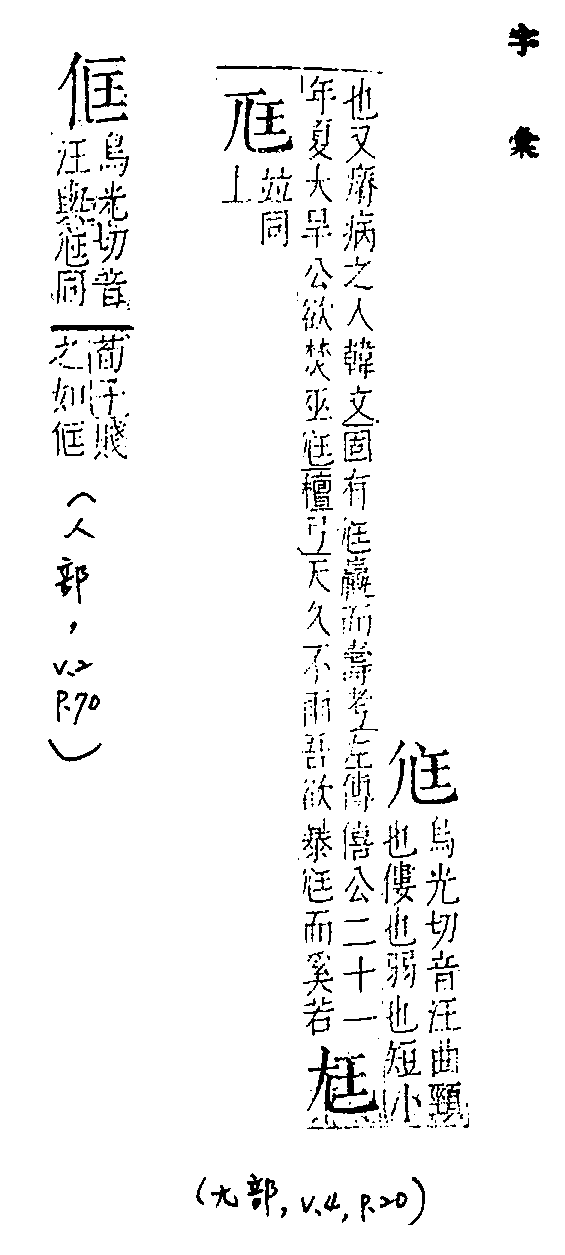 字彙
尫
烏光切音汪曲頸
也僂也弱也短小
也又癠病之人韓文固有尫羸而壽考左傳僖公二十一
年夏大旱公欲焚巫尫檀弓天久不雨吾欲暴尫而奚若
尪
尩
並同
上
㑌
烏光切音
汪與尫同
荀子賤
之如㑌
(人部, v.2 P.70)
(尢部, v.4, p.20)